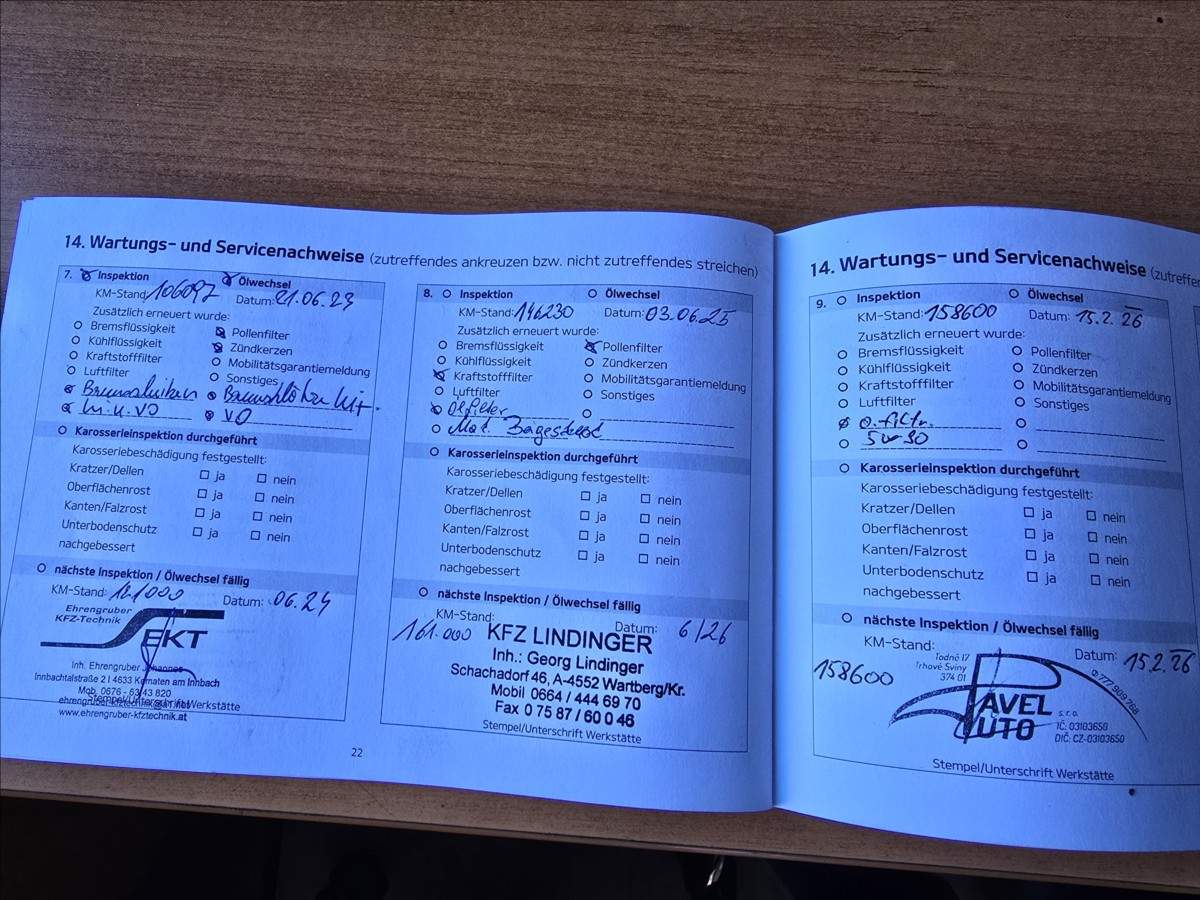 14. Wartungs- und Servicenachweise (zutreffendes ankreuzen bzw. nicht zutreffendes streichen)
7. Inspektion Ölwechsel
KM-Stand: 106097 Datum: 21.06.23
Zusätzlich erneuert wurde:
Bremsflüssigkeit Pollenfilter
Kühlflüssigkeit Zündkerzen
Kraftstofffilter Mobilitätsgarantiemeldung
Luftfilter Sonstiges
VO
Karosserieinspektion durchgeführt
Karosseriebeschädigung festgestellt:
Kratzer/Dellen ja nein
Oberflächenrost ja nein
Kanten/Falzrost ja nein
Unterbodenschutz ja nein
nachgebessert
nächste Inspektion / Ölwechsel fällig
KM-Stand: 121000 Datum: 06.24
Ehrengruber
KFZ-Technik
EKT
Inh. Ehrengruber Johannes
Innbachtalstraße 2 I 4633 Kematen am Innbach
Mob. 0676 - 63 43 820
Stempel/Unterschrift Werkstätte
www.ehrengruber-kfztechnik.at
22
8. Inspektion Ölwechsel
KM-Stand: 146230 Datum: 03.06.25
Zusätzlich erneuert wurde:
Bremsflüssigkeit Pollenfilter
Kühlflüssigkeit Zündkerzen
Kraftstofffilter Mobilitätsgarantiemeldung
Luftfilter Sonstiges
Ölfilter
Karosserieinspektion durchgeführt
Karosseriebeschädigung festgestellt:
Kratzer/Dellen ja nein
Oberflächenrost ja nein
Kanten/Falzrost ja nein
Unterbodenschutz ja nein
nachgebessert
nächste Inspektion / Ölwechsel fällig
KM-Stand: 161.000 Datum: 6/26
KFZ LINDINGER
Inh.: Georg Lindinger
Schachadorf 46, A-4552 Wartberg/Kr.
Mobil 0664 / 444 69 70
Fax 0 75 87 / 60 0 46
Stempel/Unterschrift Werkstätte
14. Wartungs- und Servicenachweise (zutreffen
9. Inspektion Ölwechsel
KM-Stand: 158600 Datum: 15.2.26
Zusätzlich erneuert wurde:
Bremsflüssigkeit Pollenfilter
Kühlflüssigkeit Zündkerzen
Kraftstofffilter Mobilitätsgarantiemeldung
Luftfilter Sonstiges
O.filtr.
5w30
Karosserieinspektion durchgeführt
Karosseriebeschädigung festgestellt:
Kratzer/Dellen ja nein
Oberflächenrost ja nein
Kanten/Falzrost ja nein
Unterbodenschutz ja nein
nachgebessert
nächste Inspektion / Ölwechsel fällig
KM-Stand: 158600 Datum: 15.2.26
Todně 17
Trhové Sviny
374 01
777 909 788
PAVEL AUTO s.r.o.
IČ: 03103650
DIČ: CZ-03103650
Stempel/Unterschrift Werkstätte